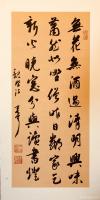 無花無酒過清明興味
蕭然似野僧昨日鄰家乞
新火曉窗分與讀書燈